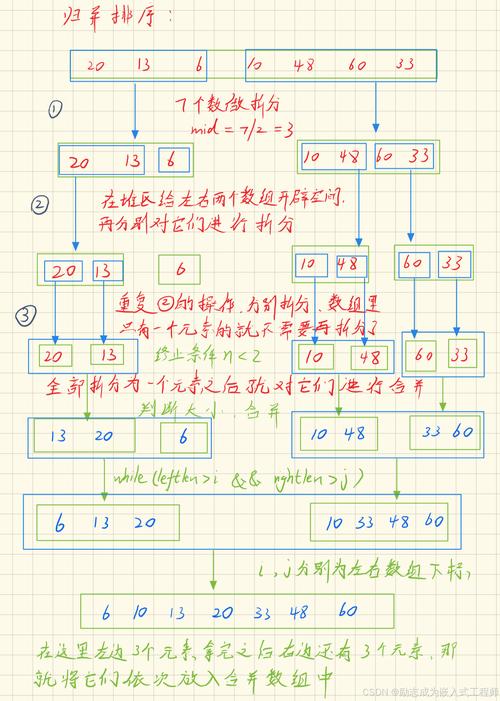 归并排序:
20 13 6 10 48 60 33
① 7个数做拆分
mid = 7/2 = 3
20 13 6 10 48 60 33
② 在堆区给左右两个数组开辟空间,
再分别对它们进行拆分
20 13 6 10 48 60 33
③ 重复②的操作,分别拆分,数组里
只有一个元素的就不需要再拆分了
20 13 终止条件 n<2 10 48 60 33
全部拆分为一个元素之后就对它们进行合并
判断大小,合并
13 20 6 10 48 33 60
while(leftlen>i && rightlen>j)
6 13 20 10 33 48 60
i,j分别为左右数组下标,
6 10 13 20 33 48 60
在这里左边3个元素拿完之后右边还有3个元素,那
就将它们依次放入合并数组中
CSDN @励志成为嵌入式工程师